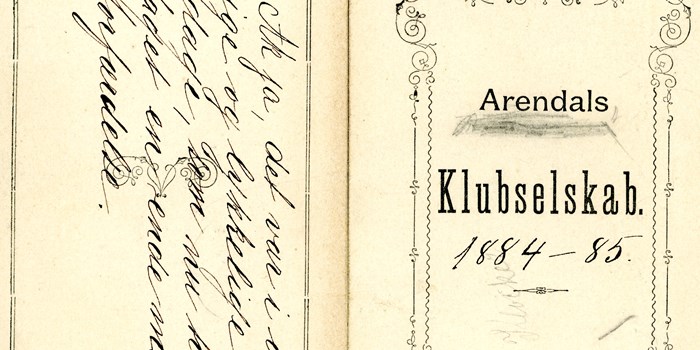 Ak ja, det var i d
ige og lykkelige
dage, som nu h
adet en ende m
Forfærdelse.
Arendals
Klubselskab.
1884-85.